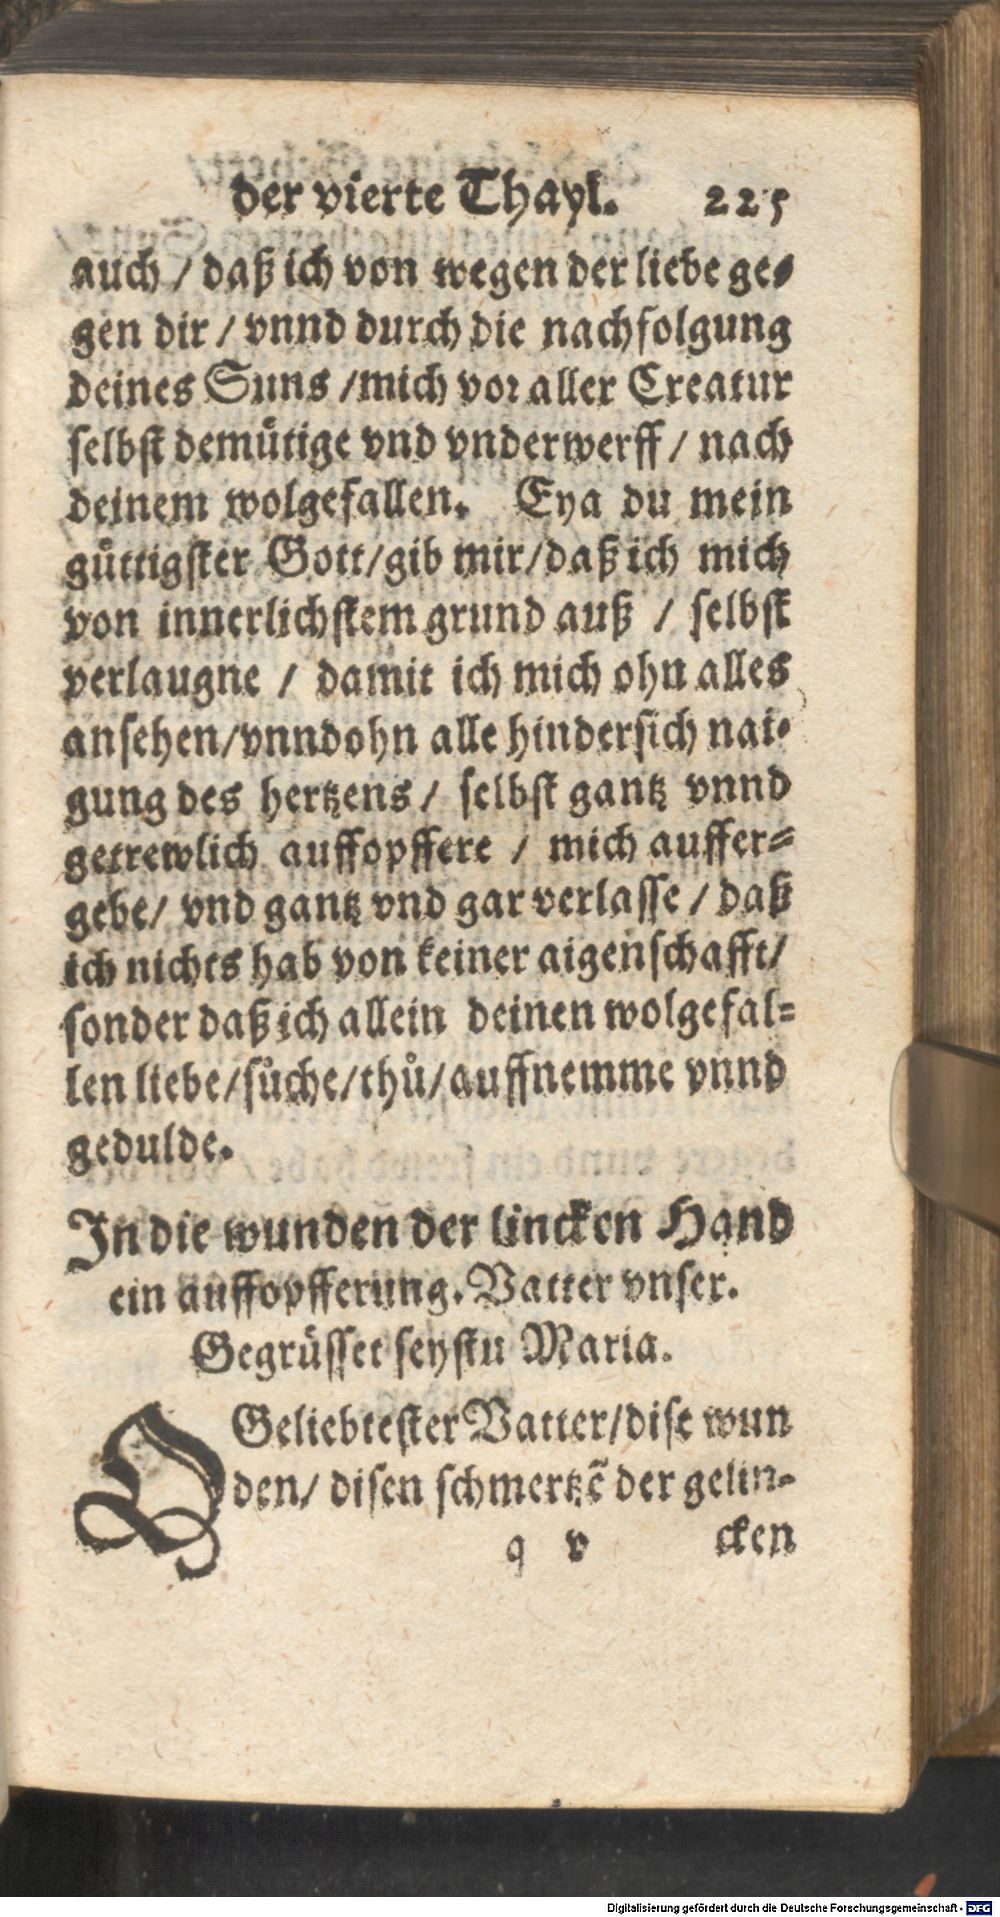 der vierte Thayl. 225
auch / daß ich von wegen der liebe ge-
gen dir / vnnd durch die nachfolgung
deines Suns / mich vor aller Creatur
selbst demuͤtige vnd vnderwerff / nach
deinem wolgefallen. Eya du mein
guͤttigster Gott / gib mir / daß ich mich
von innerlichstem grund auß / selbst
verlaugne / damit ich mich ohn alles
ansehen / vnndohn alle hindersich nai-
gung des hertzens / selbst gantz vnnd
getrewlich auffopffere / mich auffer-
gebe / vnd gantz vnd gar verlasse / daß
ich nichts hab von keiner aigenschafft /
sonder daß ich allein deinen wolgefal-
len liebe / suͦche / thuͦ / auffnemme vnnd
gedulde.
In die wunden der lincken Hand
ein auffopfferung. Vatter vnser.
Gegruͤsset seystu Maria.
O Geliebtester Vatter / dise wun
den / disen schmertzẽ der gelin-
q v cken
Digitalisierung gefördert durch die Deutsche Forschungsgemeinschaft - DFG